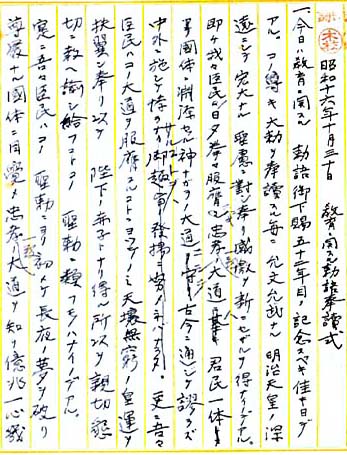 昭和十六年十月三十日　教育ニ関スル勅語奉読式
一、今日ハ教育ニ関スル　勅語御下賜五十二年目ノ記念スベキ佳キ日デ
アル。コノ尊キ大勅ヲ奉讀スル毎ニ允文允武ナル　明治天皇ノ深
遠ニシテ宏大ナル　聖慮ニ對シ奉リ感激ヲ新ニセザルヲ得ナイノデアル。
即チ我々臣民ガ日夕拳々服膺シ忠孝ノ大道　君民一体
國体ノ淵源セル神ナガラノ大道ヲ守リ古今ニ通ジテ謬ラズ
中外ニ施シテ悖ラザル御趣旨ノ發揚ニ努メネバナラヌ。更ニ吾々
臣民ハコノ大道ヲ服膺スルコトニヨツテノミ天壤無窮ノ皇運ヲ
扶翼シ奉リ以テ　陛下ノ赤子トナリ得ル所以ヲ親切懇
切ニ教ヘ諭シ給ヘルコトコノ　聖勅ニ類フモノハナイノデアル。
寔ニ吾々臣民ハコノ　聖勅ニヨリ初メテ長夜ノ夢ヲ破リ
淳厳ナル國体ニ目覚メ忠孝ノ大道ヲ知リ億兆一心